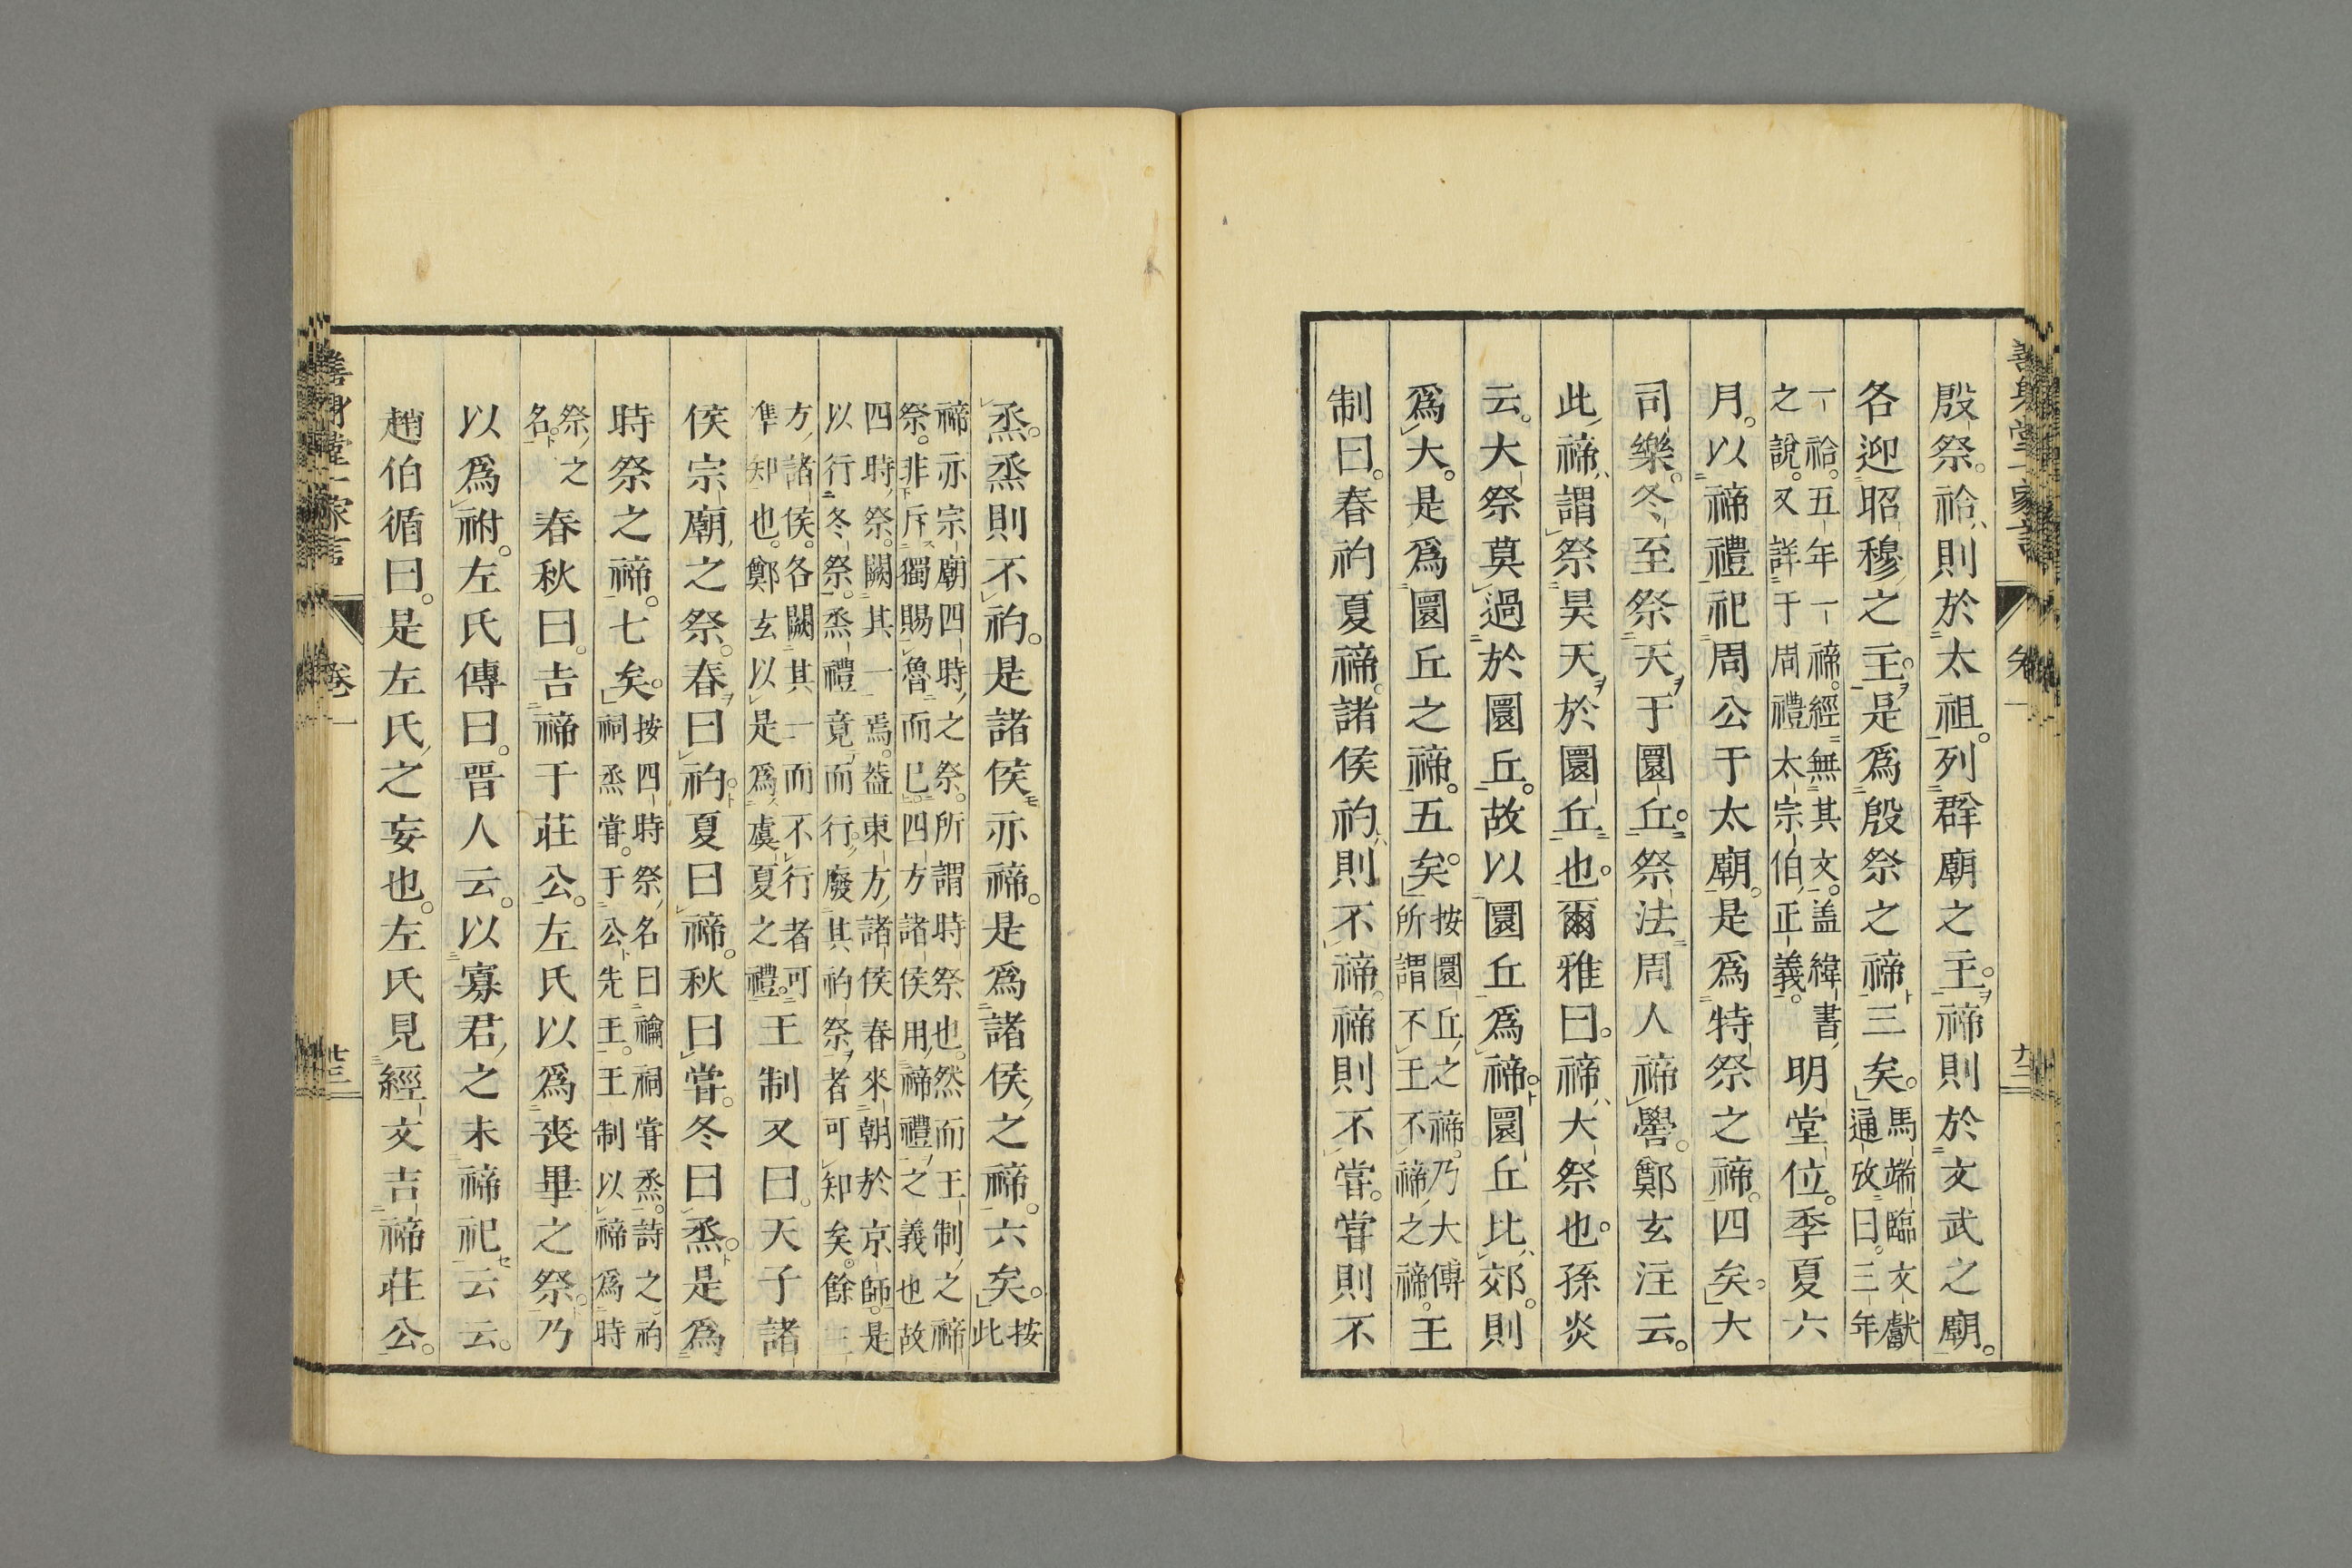 殷祭。祫則於太祖。列群廟之主。禘則於文武之廟。
各迎昭穆之主。是爲殷祭之禘三矣。馬端臨文獻
通攷曰。三年
一祫。五年一禘。經無其文。盖緯書
之說。又詳于周禮太宗伯正義。明堂位。季夏六
月。以禘禮祀周公于太廟。是爲特祭之禘。四矣。大
司樂。冬至祭天于圜丘。祭法周人禘嚳。鄭玄注云。
此禘謂祭昊天於圜丘也。爾雅曰。禘大祭也。孫炎
云。大祭莫過於圜丘。故以圜丘爲禘。圜丘比郊。則
爲大。是爲圜丘之禘。五矣。按圜丘之禘。乃大傳
所謂不王不禘之禘。王
制曰。春礿夏禘。諸侯礿則不禘。禘則不嘗。嘗則不
烝。烝則不礿。是諸侯亦禘。是爲諸侯之禘。六矣。按
此
禘亦宗廟四時之祭。所謂時祭也。然而王制之禘
祭。非斥獨賜魯而已。四方諸侯用禘禮之義也故
四時祭。闕其一焉。葢東方諸侯春來朝於京師。是
以行冬祭。烝禮竟而行。廢其礿祭者可知矣。餘三
方諸侯。各闕其一而不行者可
準知也。鄭玄以是爲虞夏之禮。王制又曰。天子諸
侯宗廟之祭。春曰礿。夏曰禘。秋曰嘗。冬曰烝。是爲
時祭之禘。七矣。按四時祭名曰禴祠嘗烝。詩之礿
祠烝嘗。于公先王。王制以禘爲時
祭之
名。春秋曰。吉禘于莊公。左氏以爲喪畢之祭。乃
以爲祔。左氏傳曰。晋人云。以寡君之未禘祀云云。
趙伯循曰。是左氏之妄也。左氏見經文吉禘莊公。
卷一